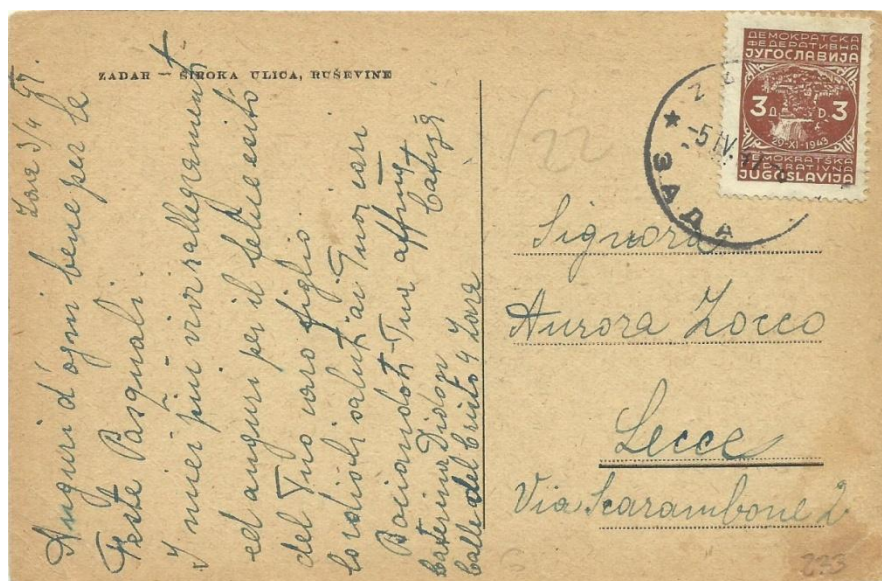 ZADAR — ŠIROKA ULICA, RUŠEVINE
Zara 3/4 47.
Auguri d'ogni bene per le
Feste Pasquali.
I miei più vivi rallegramenti
ed auguri per il felice esito
del Tuo caro figlio.
Cordiali saluti ai Tuoi cari
Baciandoti Tua affma
Caterina
Calle del Cristo 4 Zara
ДЕМОКРАТСКА
ФЕДЕРАТИВНА
ЈУГОСЛАВИЈА
3 Д. D. 3
29-XI-1943
DEMOKRATSKA
FEDERATIVNA
JUGOSLAVIJA
-5 IV. 47
ЗАДА
22
Signora
Aurora Zocco
Lecce
Via Scarambone 2
6
233